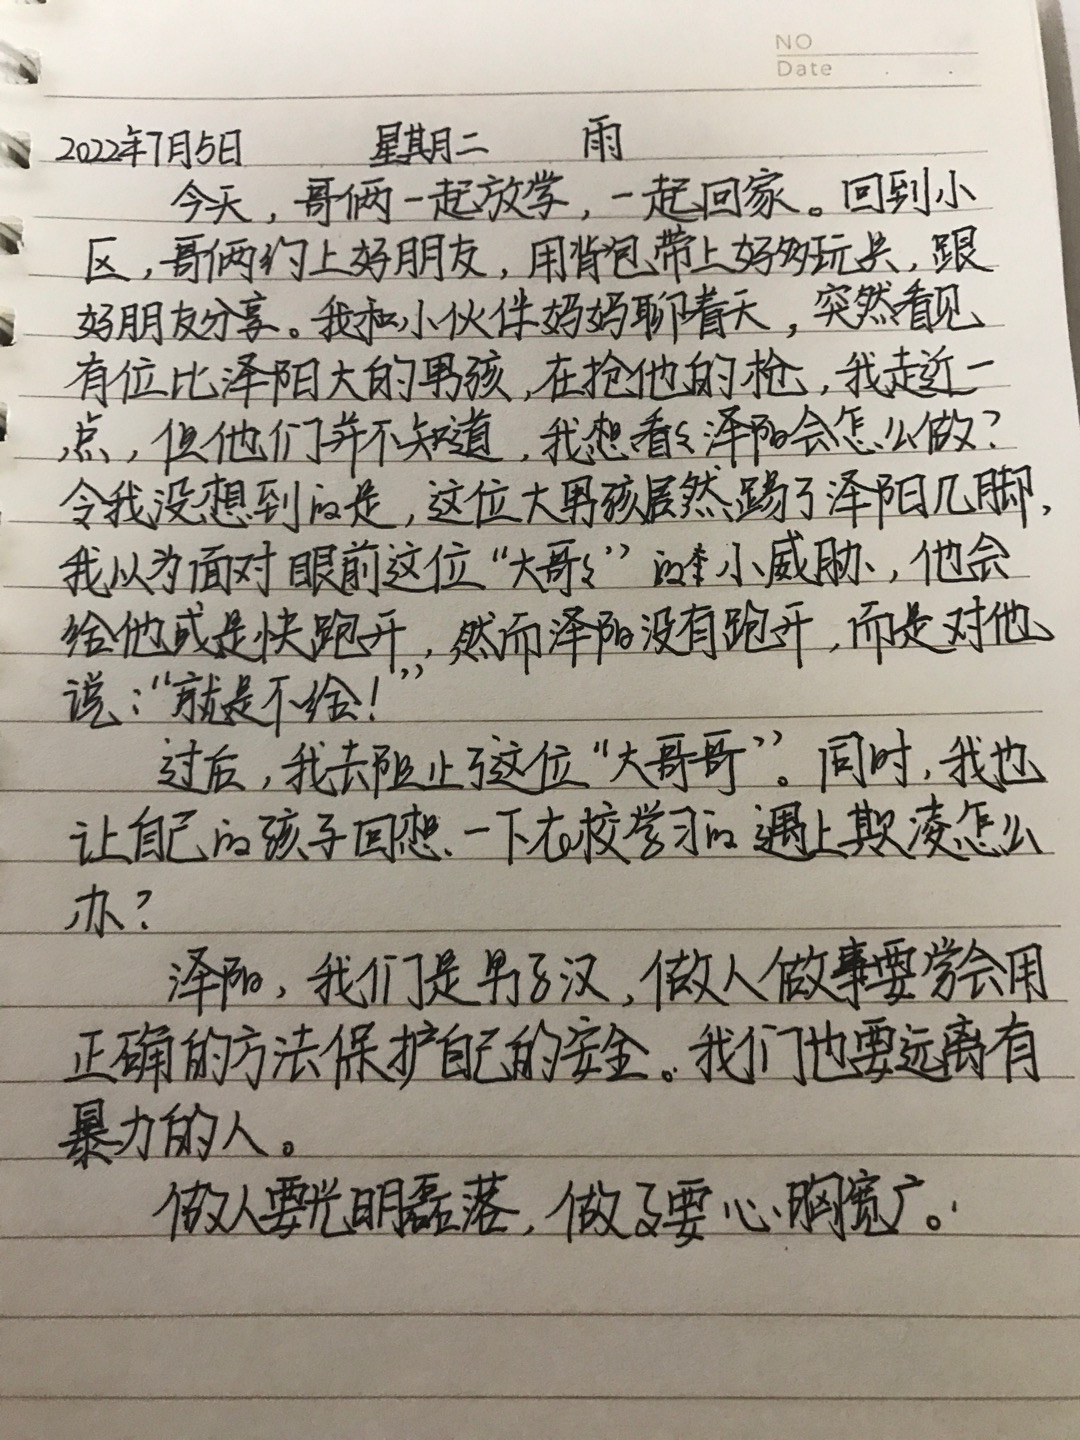 NO
Date
2022年7月5日 星期二 雨
今天，哥俩一起放学，一起回家。回到小
区，哥俩约上好朋友，用背包带上好多玩具，跟
好朋友分享。我和小伙伴妈妈聊着天，突然看见
有位比泽阳大的男孩，在抢他的枪，我走近一
点，但他们并不知道，我想看々泽阳会怎么做？
令我没想到的是，这位大男孩居然踢了泽阳几脚，
我以为面对眼前这位“大哥々”的小威胁，他会
给他或是快跑开，然而泽阳没有跑开，而是对他
说：“就是不给！”
过后，我去阻止了这位“大哥哥”。同时，我也
让自己的孩子回想一下在校学习的遇上欺凌怎么
办？
泽阳，我们是男子汉，做人做事要学会用
正确的方法保护自己的安全。我们也要远离有
暴力的人。
做人要光明磊落，做事要心胸宽广。